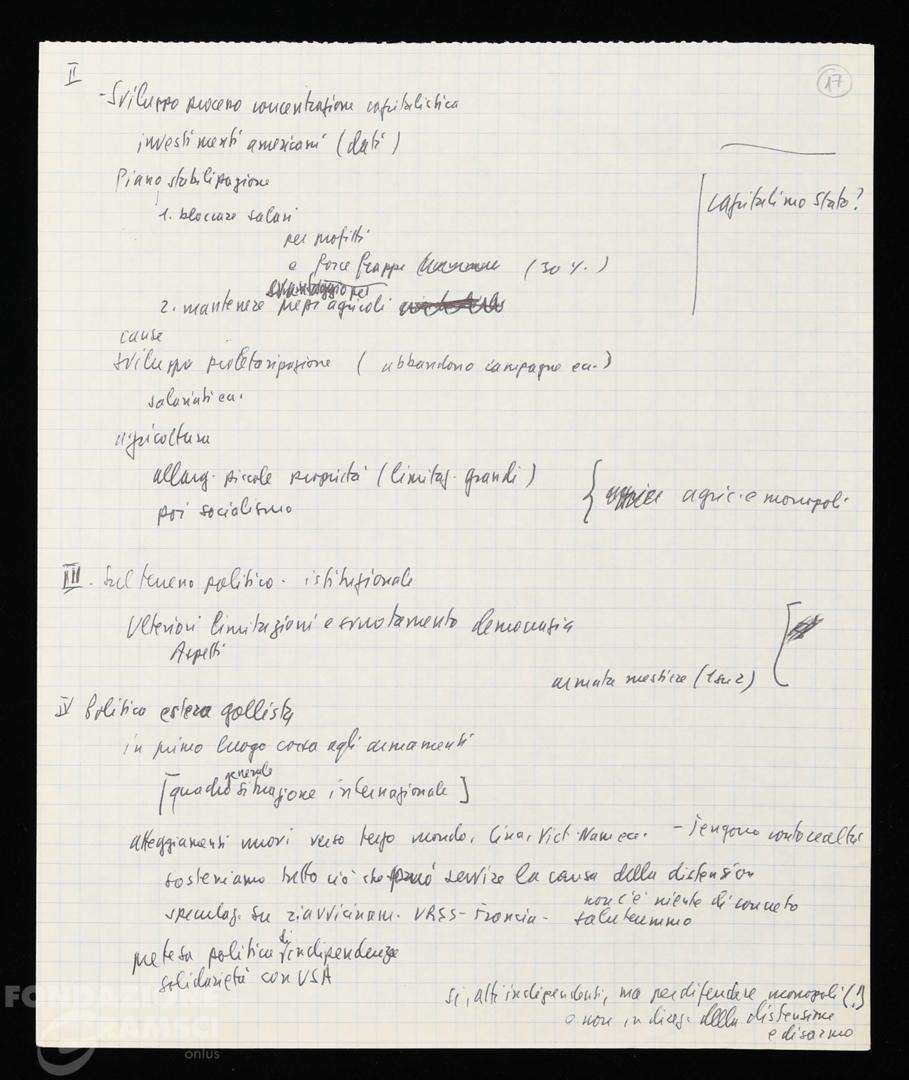 II
17
- Sviluppo processo concentrazione capitalistica
investimenti americani (dati)
Piano stabilizazione
capitalismo stato?
1. bloccare salari
per profitti
e force frappe (30 %.)
svantaggio per
2. mantenere prezzi agricoli
cause
sviluppo proletarizazione (abbandono campagne ecc.)
salariati ecc.
agricoltura
allarg. piccole proprietà (limitaz. grandi)
{ agric. e monopoli
poi socialismo
III. Sul terreno politico - istituzionale
Ulteriori limitazioni e svuotamento democrazia
Aspetti
armata mestiere (1 su 2)
IV Politica estera gollista
in primo luogo corsa agli armamenti
[quadro generale situazione internazionale]
atteggiamenti nuovi verso terzo mondo, Cina, Viet-Nam ecc. - Tengono conto realtà
sosteniamo tutto ciò che può servire la causa della distensione
non c'è niente di concreto
speculaz. su riavvicinam. URSS-Francia - saluteremmo
pretesa politica di indipendenza
solidarietà con USA
si, atti indipendenti, ma per difendere monopoli (!)
e non in direz. della distensione
e disarmo
FONDAZIONE
GRAMSCI
onlus